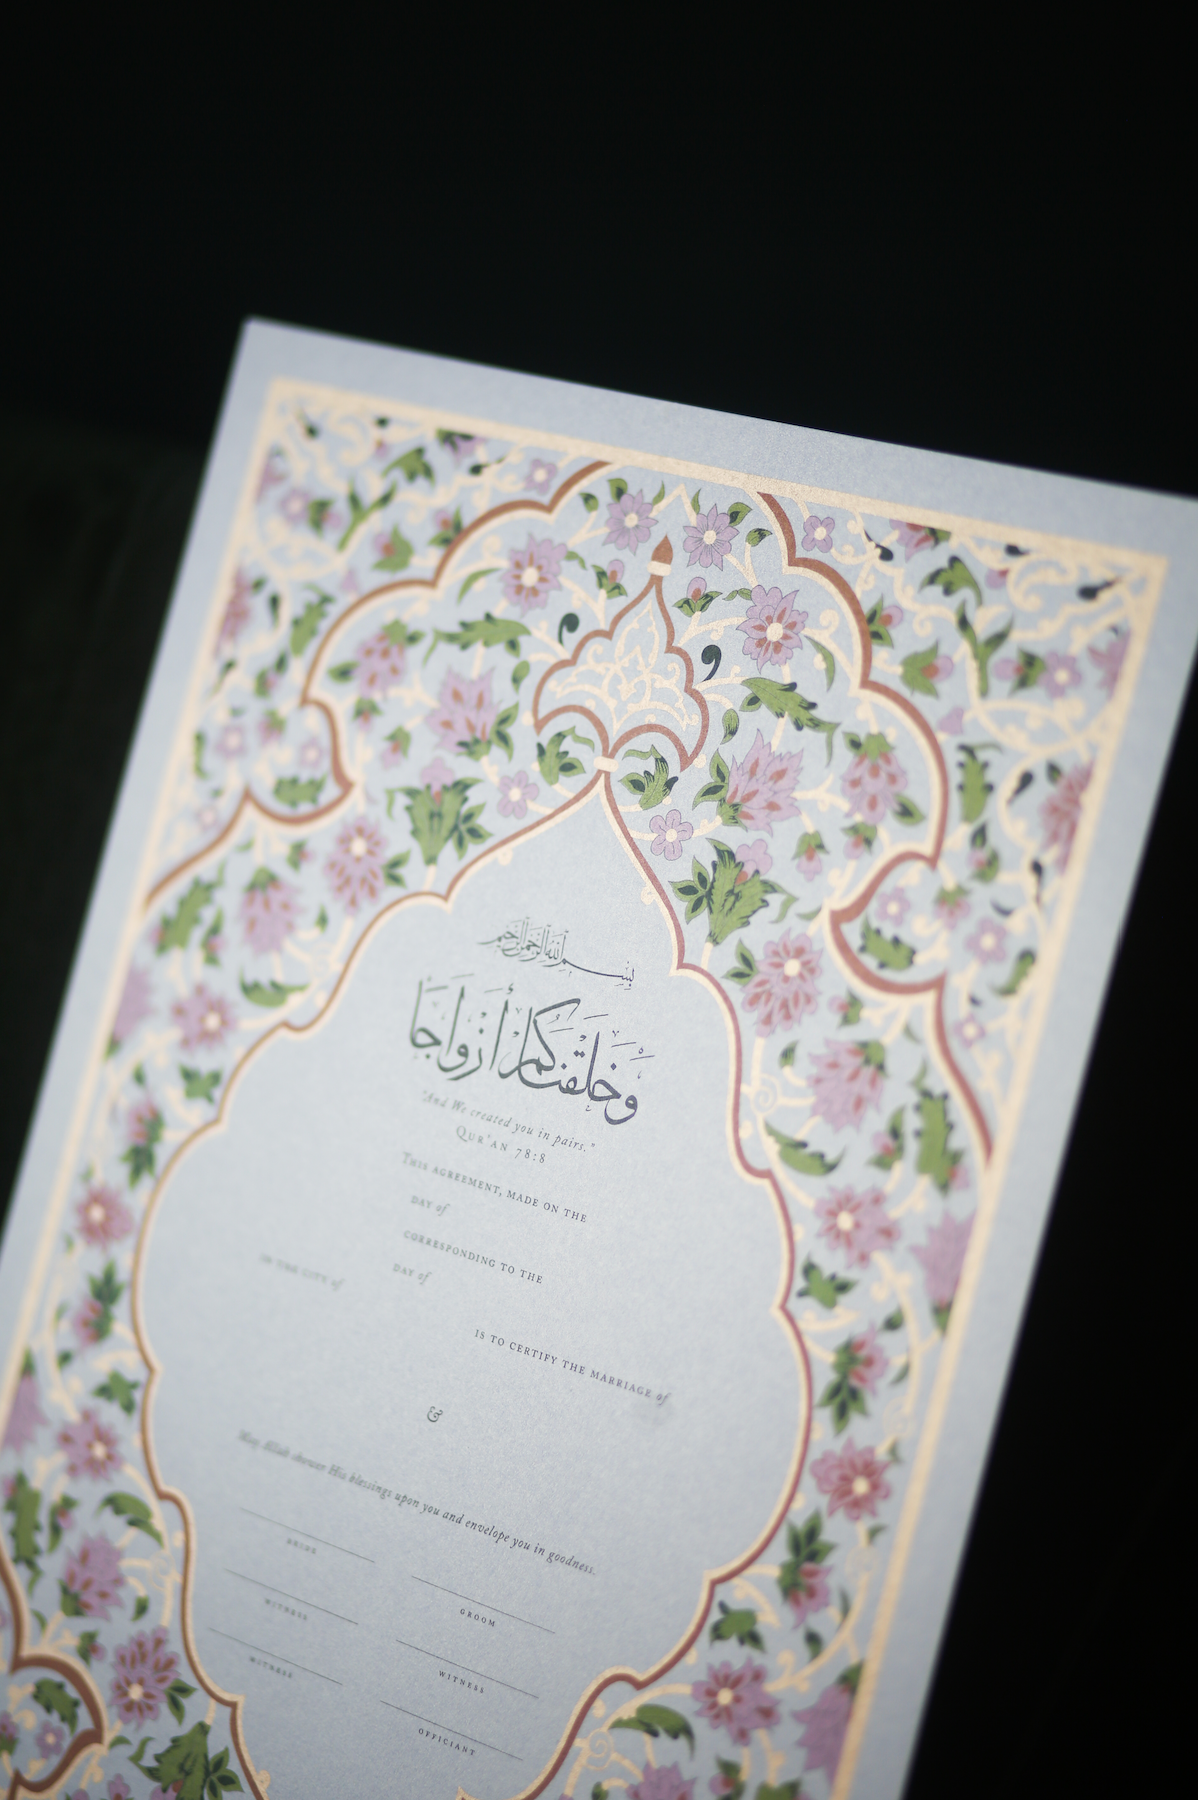 بسم الله الرحمن الرحيم
وَخَلَقْنَاكُمْ أَزْوَاجًا
"And We created you in pairs."
Qur'an 78:8
This agreement, made on the
day of
corresponding to the
day of
in the city of
is to certify the marriage of
&
May Allah shower His blessings upon you and envelope you in goodness.
BRIDE
GROOM
WITNESS
WITNESS
WITNESS
OFFICIANT